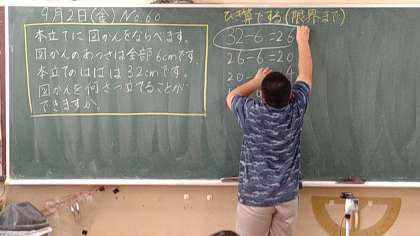 9月2日(金) No.60
本立てに図かんをならべます。
図かんのあつさは全部6cmです。
本立てのはばは32cmです。
図かんを何さつ立てることが
できますか。
ひき算でする(限界まで)
32-6=26
26-6=20
20-